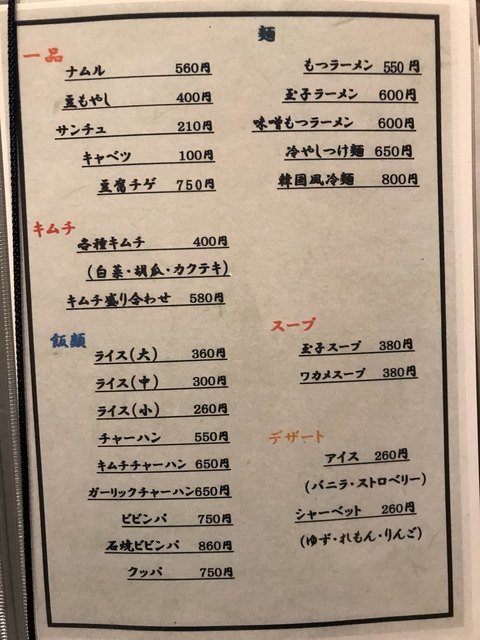 一品
ナムル 560円
豆もやし 400円
サンチュ 210円
キャベツ 100円
豆腐チゲ 750円
キムチ
各種キムチ 400円
(白菜・胡瓜・カクテキ)
キムチ盛り合わせ 580円
飯類
ライス(大) 360円
ライス(中) 300円
ライス(小) 260円
チャーハン 550円
キムチチャーハン 650円
ガーリックチャーハン650円
ビビンバ 750円
石焼ビビンバ 860円
クッパ 750円
麺
もつラーメン 550円
玉子ラーメン 600円
味噌もつラーメン 600円
冷やしつけ麺 650円
韓国風冷麺 800円
スープ
玉子スープ 380円
ワカメスープ 380円
デザート
アイス 260円
(バニラ・ストロベリー)
シャーベット 260円
(ゆず・れもん・りんご)